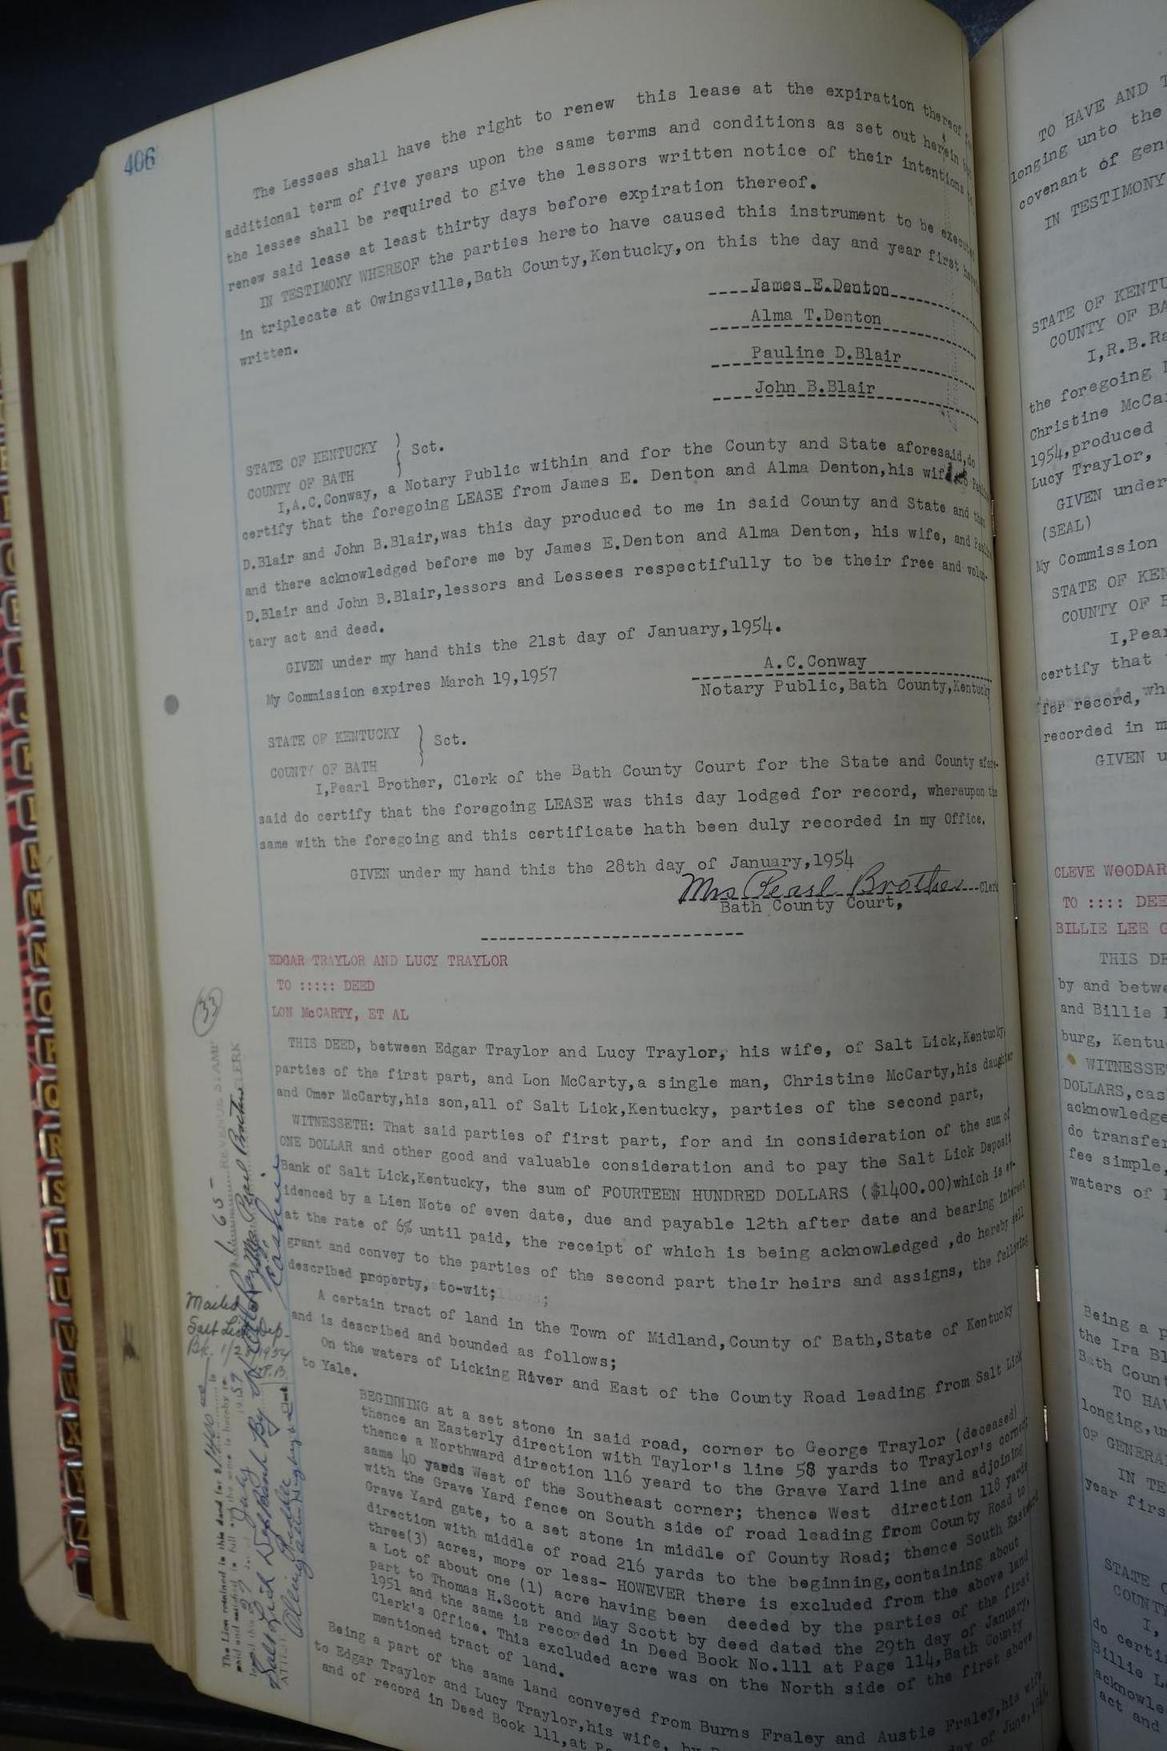 406
The Lessees shall have the right to renew this lease at the expiration thereof
additional term of five years upon the same terms and conditions as set out herein
the lessee shall be required to give the lessors written notice of their intentions
renew said lease at least thirty days before expiration thereof.
IN TESTIMONY WHEREOF the parties hereto have caused this instrument to be
in triplecate at Owingsville,Bath County,Kentucky,on this the day and year first
written.
James E.Denton
Alma T.Denton
Pauline D.Blair
John B.Blair
STATE OF KENTUCKY
COUNTY OF BATH
Sct.
I,A.C.Conway, a Notary Public within and for the County and State aforesaid,do
certify that the foregoing LEASE from James E. Denton and Alma Denton,his
D.Blair and John B.Blair,was this day produced to me in said County and State and
and there acknowledged before me by James E.Denton and Alma Denton, his wife, and
D.Blair and John B.Blair,lessors and Lessees respectifully to be their free and volun-
tary act and deed.
GIVEN under my hand this the 21st day of January,1954.
My Commission expires March 19,1957
A.C.Conway
Notary Public,Bath County,Kentucky
STATE OF KENTUCKY
COUNTY OF BATH
Sct.
I,Pearl Brother, Clerk of the Bath County Court for the State and County afore-
said do certify that the foregoing LEASE was this day lodged for record, whereupon the
same with the foregoing and this certificate hath been duly recorded in my Office.
GIVEN under my hand this the 28th day of January,1954
Mrs Pearl Brother Clerk
Bath County Court,
EDGAR TRAYLOR AND LUCY TRAYLOR
TO ::::: DEED
LON McCARTY, ET AL
THIS DEED, between Edgar Traylor and Lucy Traylor, his wife, of Salt Lick,Kentucky,
parties of the first part, and Lon McCarty,a single man, Christine McCarty,his daughter
and Omer McCarty,his son,all of Salt Lick,Kentucky, parties of the second part,
WITNESSETH: That said parties of first part, for and in consideration of the sum of
ONE DOLLAR and other good and valuable consideration and to pay the Salt Lick Deposit
Bank of Salt Lick,Kentucky, the sum of FOURTEEN HUNDRED DOLLARS ($1400.00)which is ev-
idenced by a Lien Note of even date, due and payable 12th after date and bearing interest
at the rate of 6% until paid, the receipt of which is being acknowledged ,do hereby sell
grant and convey to the parties of the second part their heirs and assigns, the following
described property, to-wit;
A certain tract of land in the Town of Midland,County of Bath,State of Kentucky
and is described and bounded as follows;
On the waters of Licking River and East of the County Road leading from Salt Lick
to Yale.
BEGINNING at a set stone in said road, corner to George Traylor (deceased)
thence an Easterly direction with Taylor's line 58 yards to Traylor's corner
thence a Northward direction 116 yeard to the Grave Yard line and adjoining
same 40 yards West of the Southeast corner; thence West direction 118 yards
with the Grave Yard fence on South side of road leading from County Road to
Grave Yard gate, to a set stone in middle of County Road; thence South
direction with middle of road 216 yards to the beginning,containing about
three(3) acres, more or less- HOWEVER there is excluded from the above land
a Lot of about one (1) acre having been deeded by the parties of the first
part to Thomas H.Scott and May Scott by deed dated the 29th day of January,
1951 and the same is recorded in Deed Book No.111 at Page 114,Bath County
Clerk's Office. This excluded acre was on the North side of the first above
mentioned tract of land.
Being a part of the same land conveyed from Burns Fraley and Austie Fraley,his wife
to Edgar Traylor and Lucy Traylor,his wife, day of June,
and of record in Deed Book 111,at
33
Mailed
Salt Lick Dep.
Bk.
The Lien retained in this deed for
TO HAVE AND
longing unto the
covenant of gen
IN TESTIMONY
STATE OF KENTU
COUNTY OF BA
I,R.B.Ra
the foregoing
Christine McCa
1954,produced
Lucy Traylor,
GIVEN under
(SEAL)
My Commission
STATE OF KEN
COUNTY OF
I,Pear
certify that
for record, wh
recorded in m
GIVEN u
CLEVE WOODAR
TO :::: DEE
BILLIE LEE
THIS DE
by and betwe
and Billie
burg, Kentu
WITNESSE
DOLLARS,cas
acknowledge
do transfer
fee simple,
waters of
Being a p
the Ira Bl
Bath Coun
TO HA
longing,u
OF GENERA
IN TE
year firs
STATE
COUNT
I,
do certi
Billie L
acknowle
act and